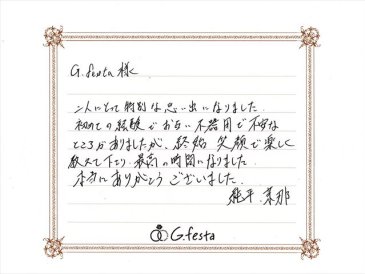 G.festa 様
二人にとって特別な思い出になりました。
初めての経験でお互い不器用で不安な
ところがありましたが、終始笑顔で楽しく
教えて下さり、最高の時間になりました。
本当にありがとうございました。
純平、
G.festa